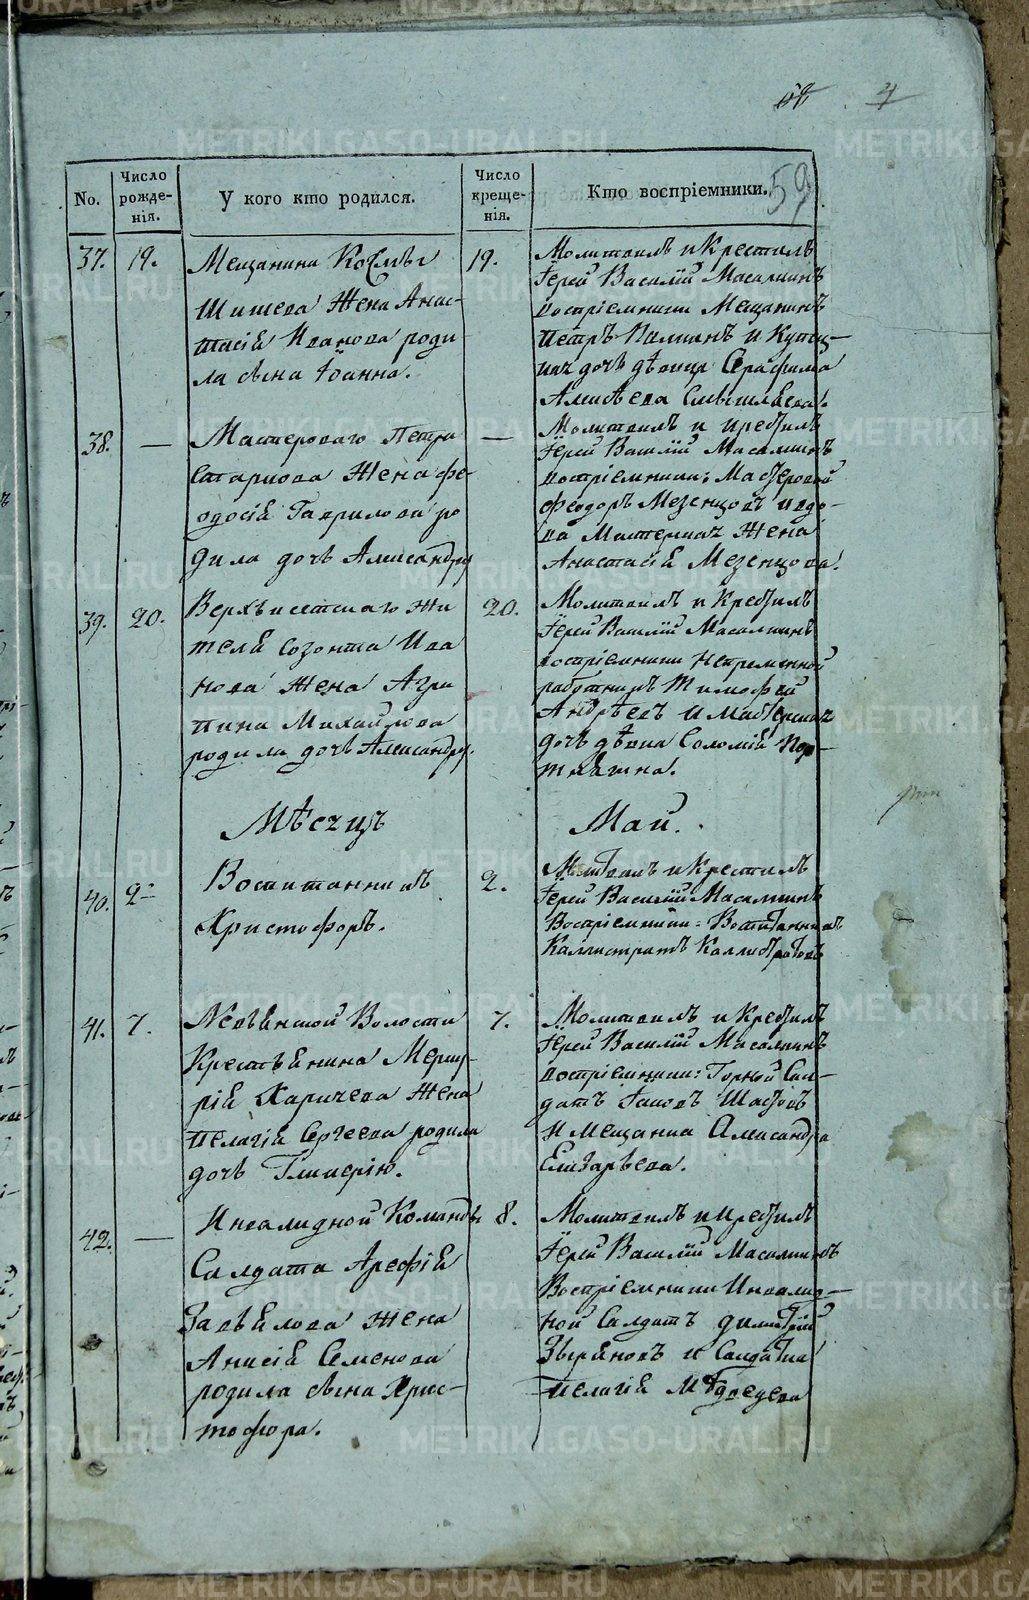 59
No.
Число рожде-нія.
У кого кто родился.
Число креще-нія.
Кто воспріемники.
37. 19.
Мещанина Космы
Шишева жена Анас-
тасія Иванова роди-
ла сына Іоанна.
19.
Молитвилъ и крестилъ
Іерей Василій Масалкинъ
воспріемники Мещанинъ
Петръ и Купец-
кая дочь дѣвица Серафима
Алексѣева
38. —
Мастероваго Петра
Старкова жена Фе-
одосія Гаврилова ро
дила дочь Александру
—
Молитвилъ и крестилъ
Іерей Василій Масалкинъ
воспріемники: Мастеровой
Феодоръ Мезенцовъ и вдо-
ва Мастерская жена
Анастасія Мезенцова.
39. 20.
Верхъисетскаго жи
теля Созонта Ива
нова жена Агри
пина Михайлова
родила дочь Александру.
20.
Молитвилъ и крестилъ
Іерей Василій Масалкинъ
воспріемники Непременной
работникъ Тимофей
Андрѣевъ и Мастерская
дочь дѣвка Соломія Пор-
тнягина.
Мѣсяцъ
Май.
40. 2
Воспитанникъ
Христофоръ.
2.
Молитвилъ и крестилъ
Іерей Василій Масалкинъ
Воспріемники: Воспитанникъ
Каллистратъ Каллистратовъ
41. 7.
Невьянской Волости
Крестьянина Мерку-
рія Харичева жена
Пелагія Сергеева родила
дочь Гликерію.
7.
Молитвилъ и крестилъ
Іерей Василій Масалкинъ
воспріемники: Горной Сол-
датъ Іаковъ
и мещанка Александра
Елизарьева.
42. —
Инвалидной Команды
Салдата Арефія
Завьялова жена
Анисія Семенова
родила сына Хрис-
тофора.
8.
Молитвилъ и крестилъ
Іерей Василій Масалкинъ
Воспріемники Инвалид-
ной Салдатъ Димитрій
Зыряновъ и Салдатка
Пелагія Медведева
METRIKI.GASO-URAL.RU